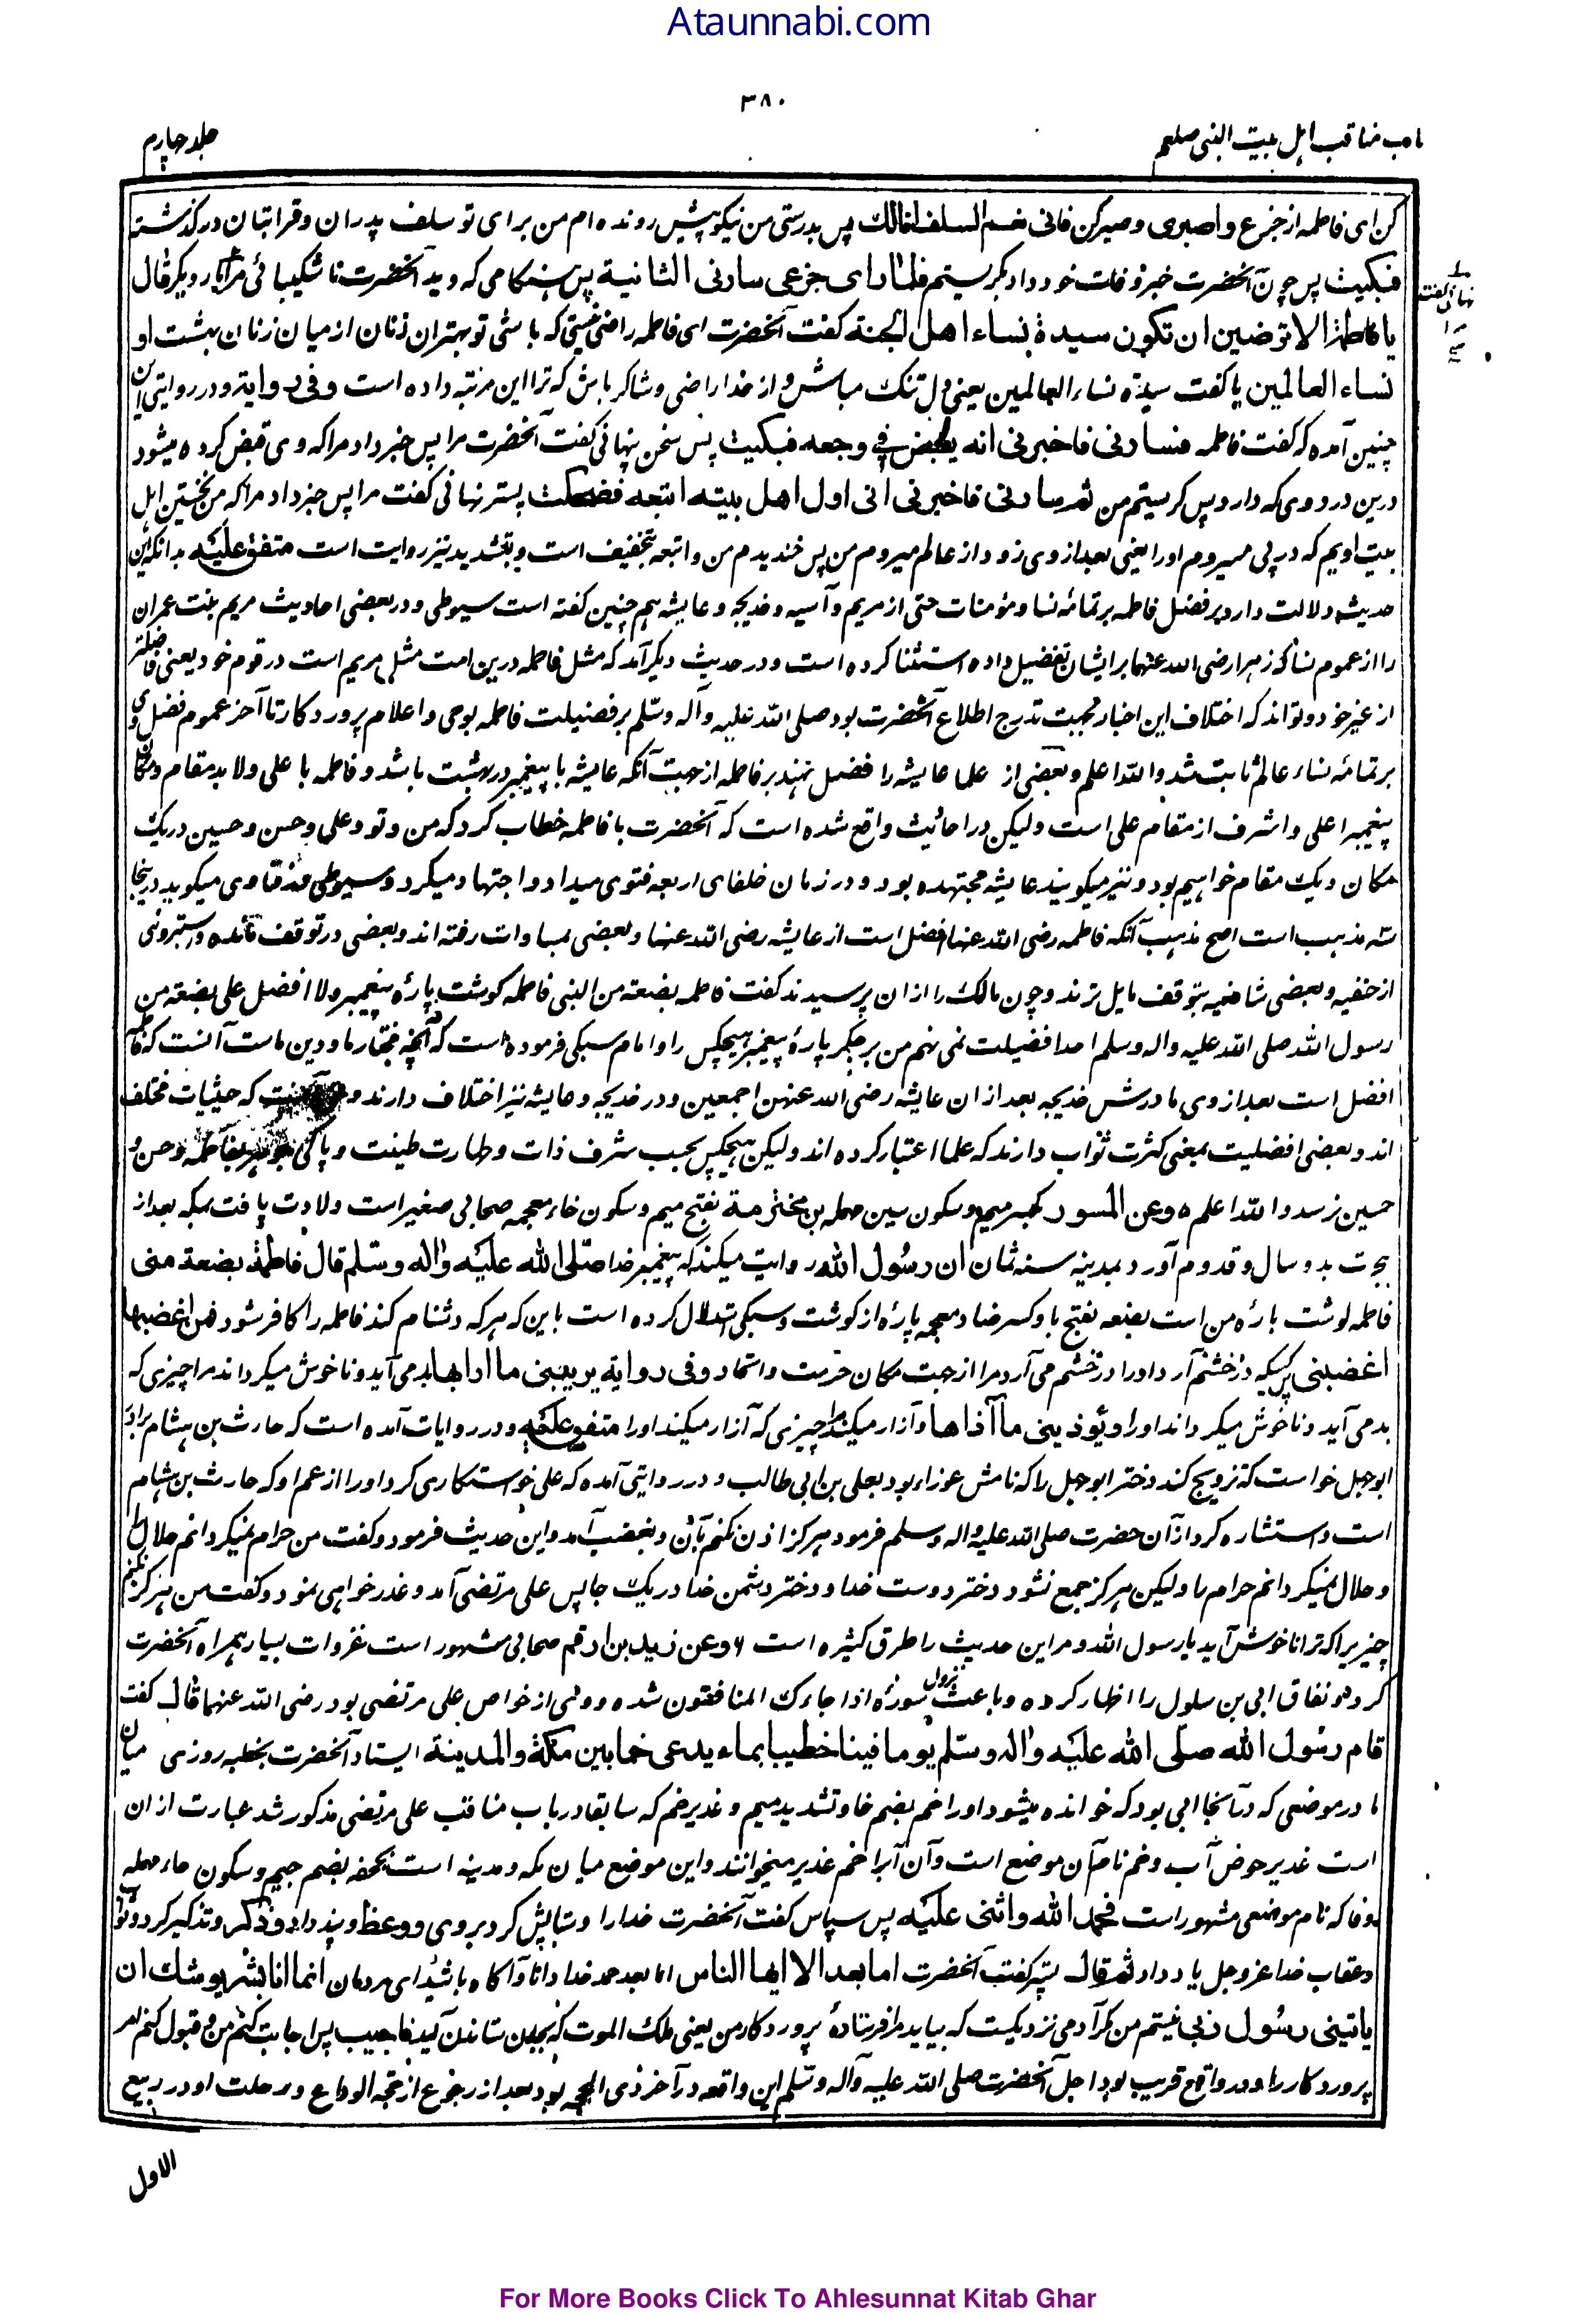 Ataunnabi.com
۳۸۰
باب مناقب اہل بیت النبی صلعم
جلد چہارم
کن ای فاطمه از جزع واصبری وصبر کن فانی نعم السلف انا لك پس بدرستی من نیکو پیش رونده ام من برای تو سلف پدران و قراباتیان درگذشته
فبكيت پس چون آنحضرت خبر وفات خود داد بگریستم فلما رای جزعی سارنی الثانیة پس هنگامی که دید آنحضرت ناشکیبائی مرا بار دیگر قال
نهانی گفت
یا فاطمة الا ترضین ان تکون سیدة نساء اهل الجنة گفت آنحضرت ای فاطمه راضی نیستی که باشی تو بهترین زنان از میان زنان بهشت او
نساء العالمین یا گفت سیدۀ نساء العالمین یعنی دل تنگ مباش و از خدا راضی و شاکر باش که ترا این مرتبه داده است وفی روایة و در روایتی این
چنین آمده که گفت فاطمه فسارنی فاخبرنی انه یقبض فی وجعه فبکیت پس سخن پنهانی گفت آنحضرت مرا پس خبر داد مرا که وی قبض کرده میشود
درین دردی که دارد پس گریستم من ثم سارنی فاخبرنی انی اول اهل بیته اتبعه فضحکت پستر نهانی گفت مرا پس خبر داد مرا که من نخستین اهل
بیت اویم که در پی میروم اورا یعنی بعد از وی زود از عالم میروم من پس خندیدم من واتبعه بتخفیف است و بتشدید نیز روایت است متفق علیه بدانکه این
حدیث دلالت دارد بر فضل فاطمه بر تمامۀ نساء مؤمنات حتی از مریم و آسیه و خدیجه و عایشه هم چنین گفته است سیوطی و در بعضی احادیث مریم بنت عمران
را از عموم نسا که زهرا رضی الله عنها بر ایشان تفضیل داده استثنا کرده است و در حدیث دیگر آمده که مثل فاطمه درین امت مثل مریم است در قوم خود یعنی فاضلتر
از غیر خود و تواند که اختلاف این اخبار بجهت تدرج اطلاع آنحضرت بود صلی الله علیه وآله وسلم بر فضیلت فاطمه بوحی و اعلام پروردگار تا آخر عموم فضل وی
بر تمامۀ نساء عالم ثابت شد والله اعلم و بعضی از علما عایشه را فضل نهند بر فاطمه از جهت آنکه عایشه با پیغمبر در بهشت باشد و فاطمه با علی ولابد مقام و مکان
پیغمبر اعلی و اشرف از مقام علی است ولیکن در احادیث واقع شده است که آنحضرت با فاطمه خطاب کرد که من و تو و علی و حسن و حسین در یک
مکان و یک مقام خواهیم بود و نیز میگویند عایشه مجتهده بود و در زمان خلفای اربعه فتوی میداد و اجتهاد میکرد و سیوطی در فتاوی میگوید درینجا
سه مذهب است اصح مذهب آنکه فاطمه رضی الله عنها افضل است از عایشه رضی الله عنها و بعضی بمساوات رفته اند و بعضی در توقف مانده و استروشنی
از حنفیه و بعضی شافعیه بتوقف مایل ترند و چون مالک را ازان پرسیدند گفت فاطمه بضعة من النبی فاطمه گوشت پارۀ پیغمبر ولا افضل علی بضعة من
رسول الله صلی الله علیه واله وسلم احدا فضیلت نمی نهم من بر جگر پارۀ پیغمبر هیچکس را و امام سبکی فرموده است که آنچه مختار ما و دین ماست آنست که فاطمه
افضل است بعد از وی مادرش خدیجه بعد ازان عایشه رضی الله عنهن اجمعین و در خدیجه و عایشه نیز اختلاف دارند و که حیثیات مختلف
اند و بعضی افضلیت بمعنی کثرت ثواب دارند که علما اعتبار کرده اند ولیکن هیچکس بحسب شرف ذات و طهارت طینت و پاکی جوهر بفاطمه و حسن و
حسین نرسد والله اعلم وعن المسور بکسر میم و سکون سین مهمله بن مخرمة بفتح میم و سکون خاء معجمه صحابی صغیر است ولادت یافت بمکه بعد از
هجرت بدو سال و قدوم آورد بمدینه سنه ثمان ان رسول الله روایت میکند که پیغمبر خدا صلی الله علیه واله وسلم قال فاطمة بضعة منی
فاطمه گوشت پارۀ من است بضعه بفتح با و کسر ضاد معجمه پارۀ از گوشت و سبکی استدلال کرده است باین که هر که دشنام کند فاطمه را کافر شود فمن اغضبها
اغضبنی پس کسیکه در خشم آرد اورا در خشم می آرد مرا از جهت مکان حرمت و اتحاد وفی روایة یریبنی ما ارابها بد می آید و ناخوش میگرداند مرا چیزی که
بد می آید و ناخوش میگرداند اورا ویؤذینی ما آذاها و آزار میکند مرا چیزی که آزار میکند اورا متفق علیه و در روایات آمده است که حارث بن هشام برادر
ابوجهل خواست که تزویج کند دختر ابوجهل را که نامش عوراء بود بعلی بن ابی طالب و در روایتی آمده که علی خواستگاری کرد اورا از عم او که حارث بن هشام
است و استشاره کرد ازان حضرت صلی الله علیه واله وسلم فرمود هرگز اذن نکنم بآن و بغضب آمد و این حدیث فرمود و گفت من حرام نمیگردانم حلال را
و حلال نمیگردانم حرام را ولیکن هرگز جمع نشود دختر دوست خدا و دختر دشمن خدا در یک جا پس علی مرتضی آمد و عذر خواهی نمود و گفت من هرگز نکنم
چیزیرا که ترا ناخوش آید یا رسول الله و مر این حدیث را طرق کثیره است وعن زید بن ارقم صحابی مشهور است غزوات بسیار همراه آنحضرت
کرده و نفاق ابی بن سلول را اظهار کرده و باعث نزول سورۀ اذا جاءک المنافقون شده و وی از خواص علی مرتضی بود رضی الله عنهما قال گفت
قام رسول الله صلی الله علیه واله وسلم یوما فینا خطیبا بماء یدعی خما بین مکة والمدینة ایستاد آنحضرت بخطبه روزی میان
ما در موضعی که در آنجا آبی بود که خوانده میشود اورا خم بضم خا و تشدید میم و غدیر خم که سابقا در باب مناقب علی مرتضی مذکور شد عبارت ازان
است غدیر حوض آب و خم نام آن موضع است و آن آبرا خم غدیر میخوانند و این موضع میان مکه و مدینه است بجحفه بضم جیم و سکون حاء مهمله
و فا که نام موضعی مشهور است فحمد الله واثنی علیه پس سپاس گفت آنحضرت خدا را و ستایش کرد بروی ووعظ و پند داد وذکر و تذکیر کرد و ثواب
و عقاب خدا عز وجل یاد داد ثم قال پستر گفت آنحضرت اما بعد الا ایها الناس اما بعد حمد خدا دانا و آگاه باشید ای مردمان انما انا بشر یوشك ان
یاتینی رسول ربی نیستم من مگر آدمی نزدیکست که بیاید مرا فرستادۀ پروردگار من یعنی ملک الموت که بجان ستاندن آید فاجیب پس اجابت کنم من و قبول کنم امر
پروردگار را و در واقع قریب بود اجل آنحضرت صلی الله علیه وآله وسلم این واقعه در آخر ذی الحجه بود بعد از رجوع از حجة الوداع و رحلت او در ربیع
الاول
For More Books Click To Ahlesunnat Kitab Ghar